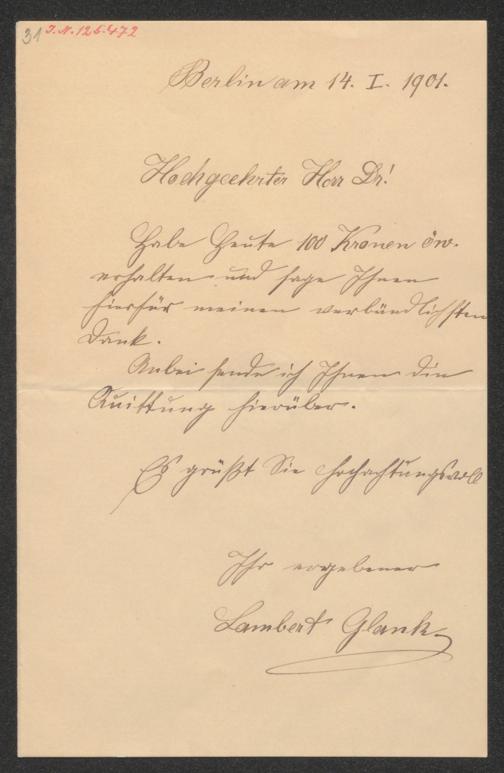 31 J.N. 125.472
Berlin am 14. I. 1901.
Hochgeehrter Herr Dr!
Habe Heute 100 Kronen ö.w.
erhalten und sage Ihnen
hierfür meinen verbindlichsten
Dank.
Anbei sende ich Ihnen die
Quittung hierüber.
Es grüßt Sie hochachtungsvoll
Ihr ergebener
Lambert Glank